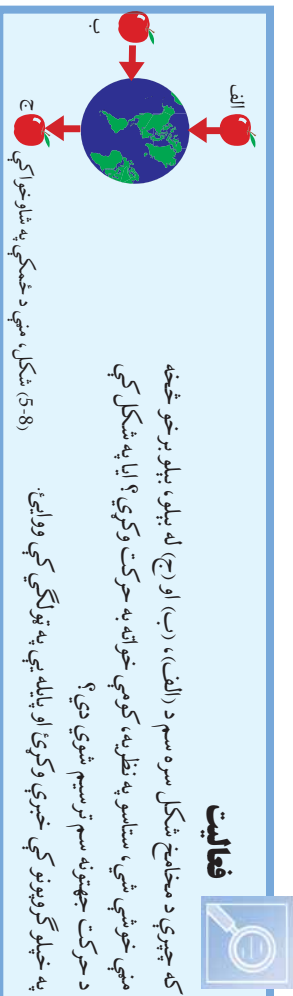 فعاليت
که چېرې د مخامخ شکل سره سم د (الف)، (ب) او (ج) له بېلو، بېلو برخو څخه
مڼې خوشې شي، ستاسو په نظريه، کومې خواته به حرکت وکړي؟ ايا په شکل کې
د حرکت جهتونه سم ترسيم شوي دي؟
په خپلو گروپونو کې خبرې وکړئ او پايله يې په ټولگي کې ووايئ.
الف
ب
ج
(5-8) شکل، مڼې د ځمکې په شاوخوا کې